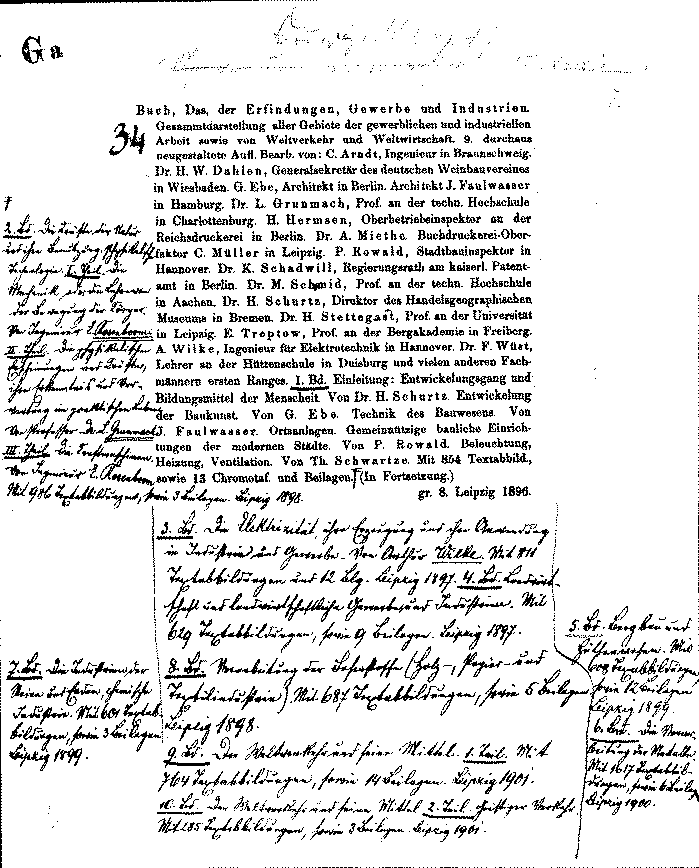 Ga
34
Buch, Das, der Erfindungen, Gewerbe und Industrien.
Gesammtdarstellung aller Gebiete der gewerblichen und industriellen
Arbeit sowie von Weltverkehr und Weltwirtschaft. 9. durchaus
neugestaltete Aufl. Bearb. von: C. Arndt, Ingenieur in Braunschweig.
Dr. H. W. Dahlen, Generalsekretär des deutschen Weinbauvereines
in Wiesbaden. G. Ebe, Architekt in Berlin. Architekt J. Faulwasser
in Hamburg. Dr. L. Grunmach, Prof. an der techn. Hochschule
in Charlottenburg. H. Hermsen, Oberbetriebsinspektor an der
Reichsdruckerei in Berlin. Dr. A. Miethe. Buchdruckerei-Ober-
faktor C. Müller in Leipzig. P. Rowald, Stadtbauinspektor in
Hannover. Dr. K. Schadwill, Regierungsrath am kaiserl. Patent-
amt in Berlin. Dr. M. Schmid, Prof. an der techn. Hochschule
in Aachen. Dr. H. Schurtz, Direktor des Handelsgeographischen
Museums in Bremen. Dr. H. Stettegast, Prof. an der Universität
in Leipzig. E. Treptow, Prof. an der Bergakademie in Freiberg.
A. Wilke, Ingenieur für Elektrotechnik in Hannover. Dr. F. Wüst,
Lehrer an der Hüttenschule in Duisburg und vielen anderen Fach-
männern ersten Ranges. 1. Bd. Einleitung: Entwickelungsgang und
Bildungsmittel der Menscheit. Von Dr. H. Schurtz. Entwickelung
der Baukunst. Von G. Ebe. Technik des Bauwesens. Von
J. Faulwasser. Ortsanlagen. Gemeinnützige bauliche Einrich-
tungen der modernen Städte. Von P. Rowald. Beleuchtung,
Heizung, Ventilation. Von Th. Schwartze. Mit 854 Textabbild.,
sowie 13 Chromotaf. und Beilagen. (In Fortsetzung.)
gr. 8. Leipzig 1896.
2. Bd. Die Kräfte der Natur
und ihre Benutzung. Physikalisch
Technologie. I. Teil. Die
Mechanik, oder die Lehre von
der Bewegung der Körper.
Von Ingenieur E. Rosenboom
II. Theil. Die physikalischen
Erscheinungen und Kräfte,
ihre Erkenntnis und Ver-
wertung im praktischen Leben
Von Professor Dr. L. Grunmach
III. Theil.
Von Ingenieur E. Rosenboom.
Mit 986 Textabbildungen, sowie 3 Beilagen. Leipzig 1898.
3. Bd. Die Elektrizität, ihre Erzeugung und ihre Anwendung
in Industrie und Gewerbe. Von Arthur Wilke. Mit 811
Textabbildungen und 12 Blg. Leipzig 1897. 4. Bd. Landwirt-
schaft und landwirtschaftliche Gewerbe und Industrien. Mit
629 Textabbildungen, sowie 9 Beilagen. Leipzig 1897.
5. Bd. Bergbau und
Hüttenwesen. Mit
Textabbildungen
sowie 12 Beilagen
Leipzig 1899.
6. Bd. Die Verar-
beitung der Metalle.
Mit 1617 Textabbil-
dungen, sowie 6 Beilagen
Leipzig 1900.
7. Bd. Die Industrien der
Steine und Erden, chemische
Industrie. Mit 601 Textab-
bildungen, sowie 3 Beilagen
Leipzig 1899.
8. Bd. Verarbeitung der Faserstoffe (Holz-, Papier- und
Textilindustrie). Mit 687 Textabbildungen, sowie 5 Beilagen
Leipzig 1898.
9. Bd. Der Weltverkehr und seine Mittel. 1. Teil. Mit
764 Textabbildungen, sowie 14 Beilagen. Leipzig 1901.
10. Bd. Der Weltverkehr und seine Mittel 2. Teil. Verkehr.
Mit 185 Textabbildungen, sowie 3 Beilagen. Leipzig 1901.